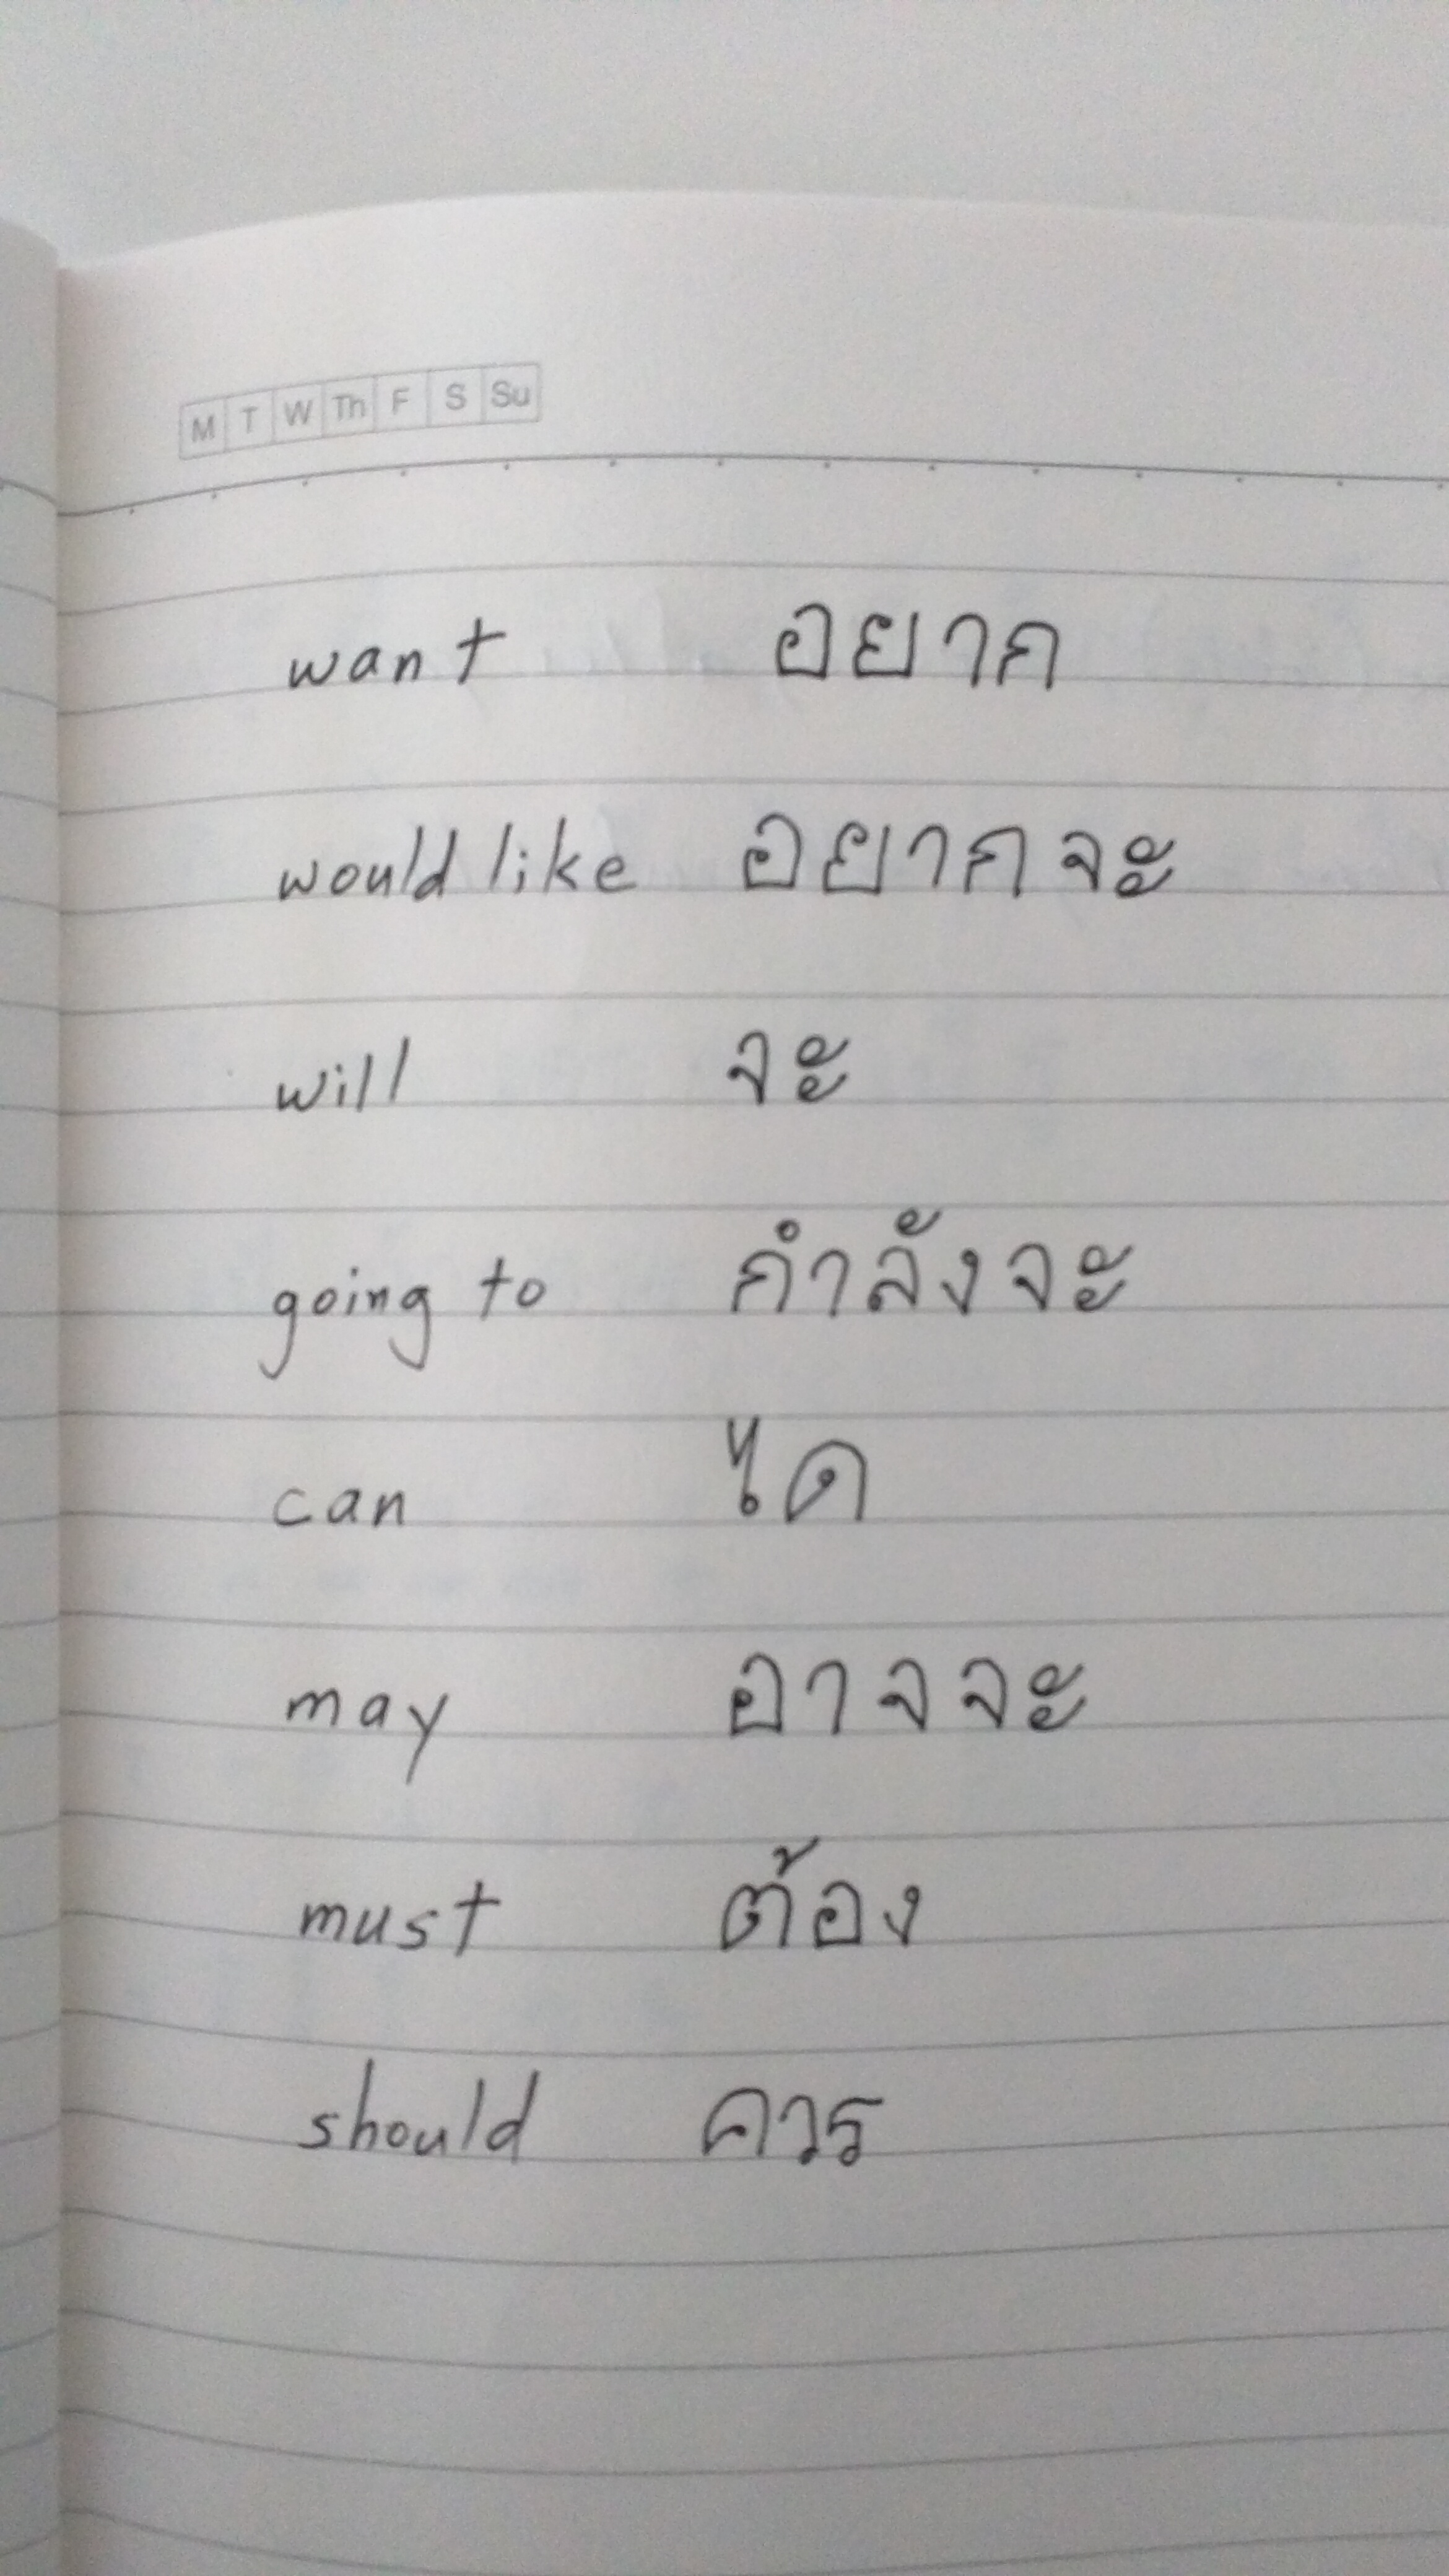 M T W Th F S Su
want อยาก
would like อยากจะ
will จะ
going to กำลังจะ
can ได
may อาจจะ
must ต้อง
should ควร